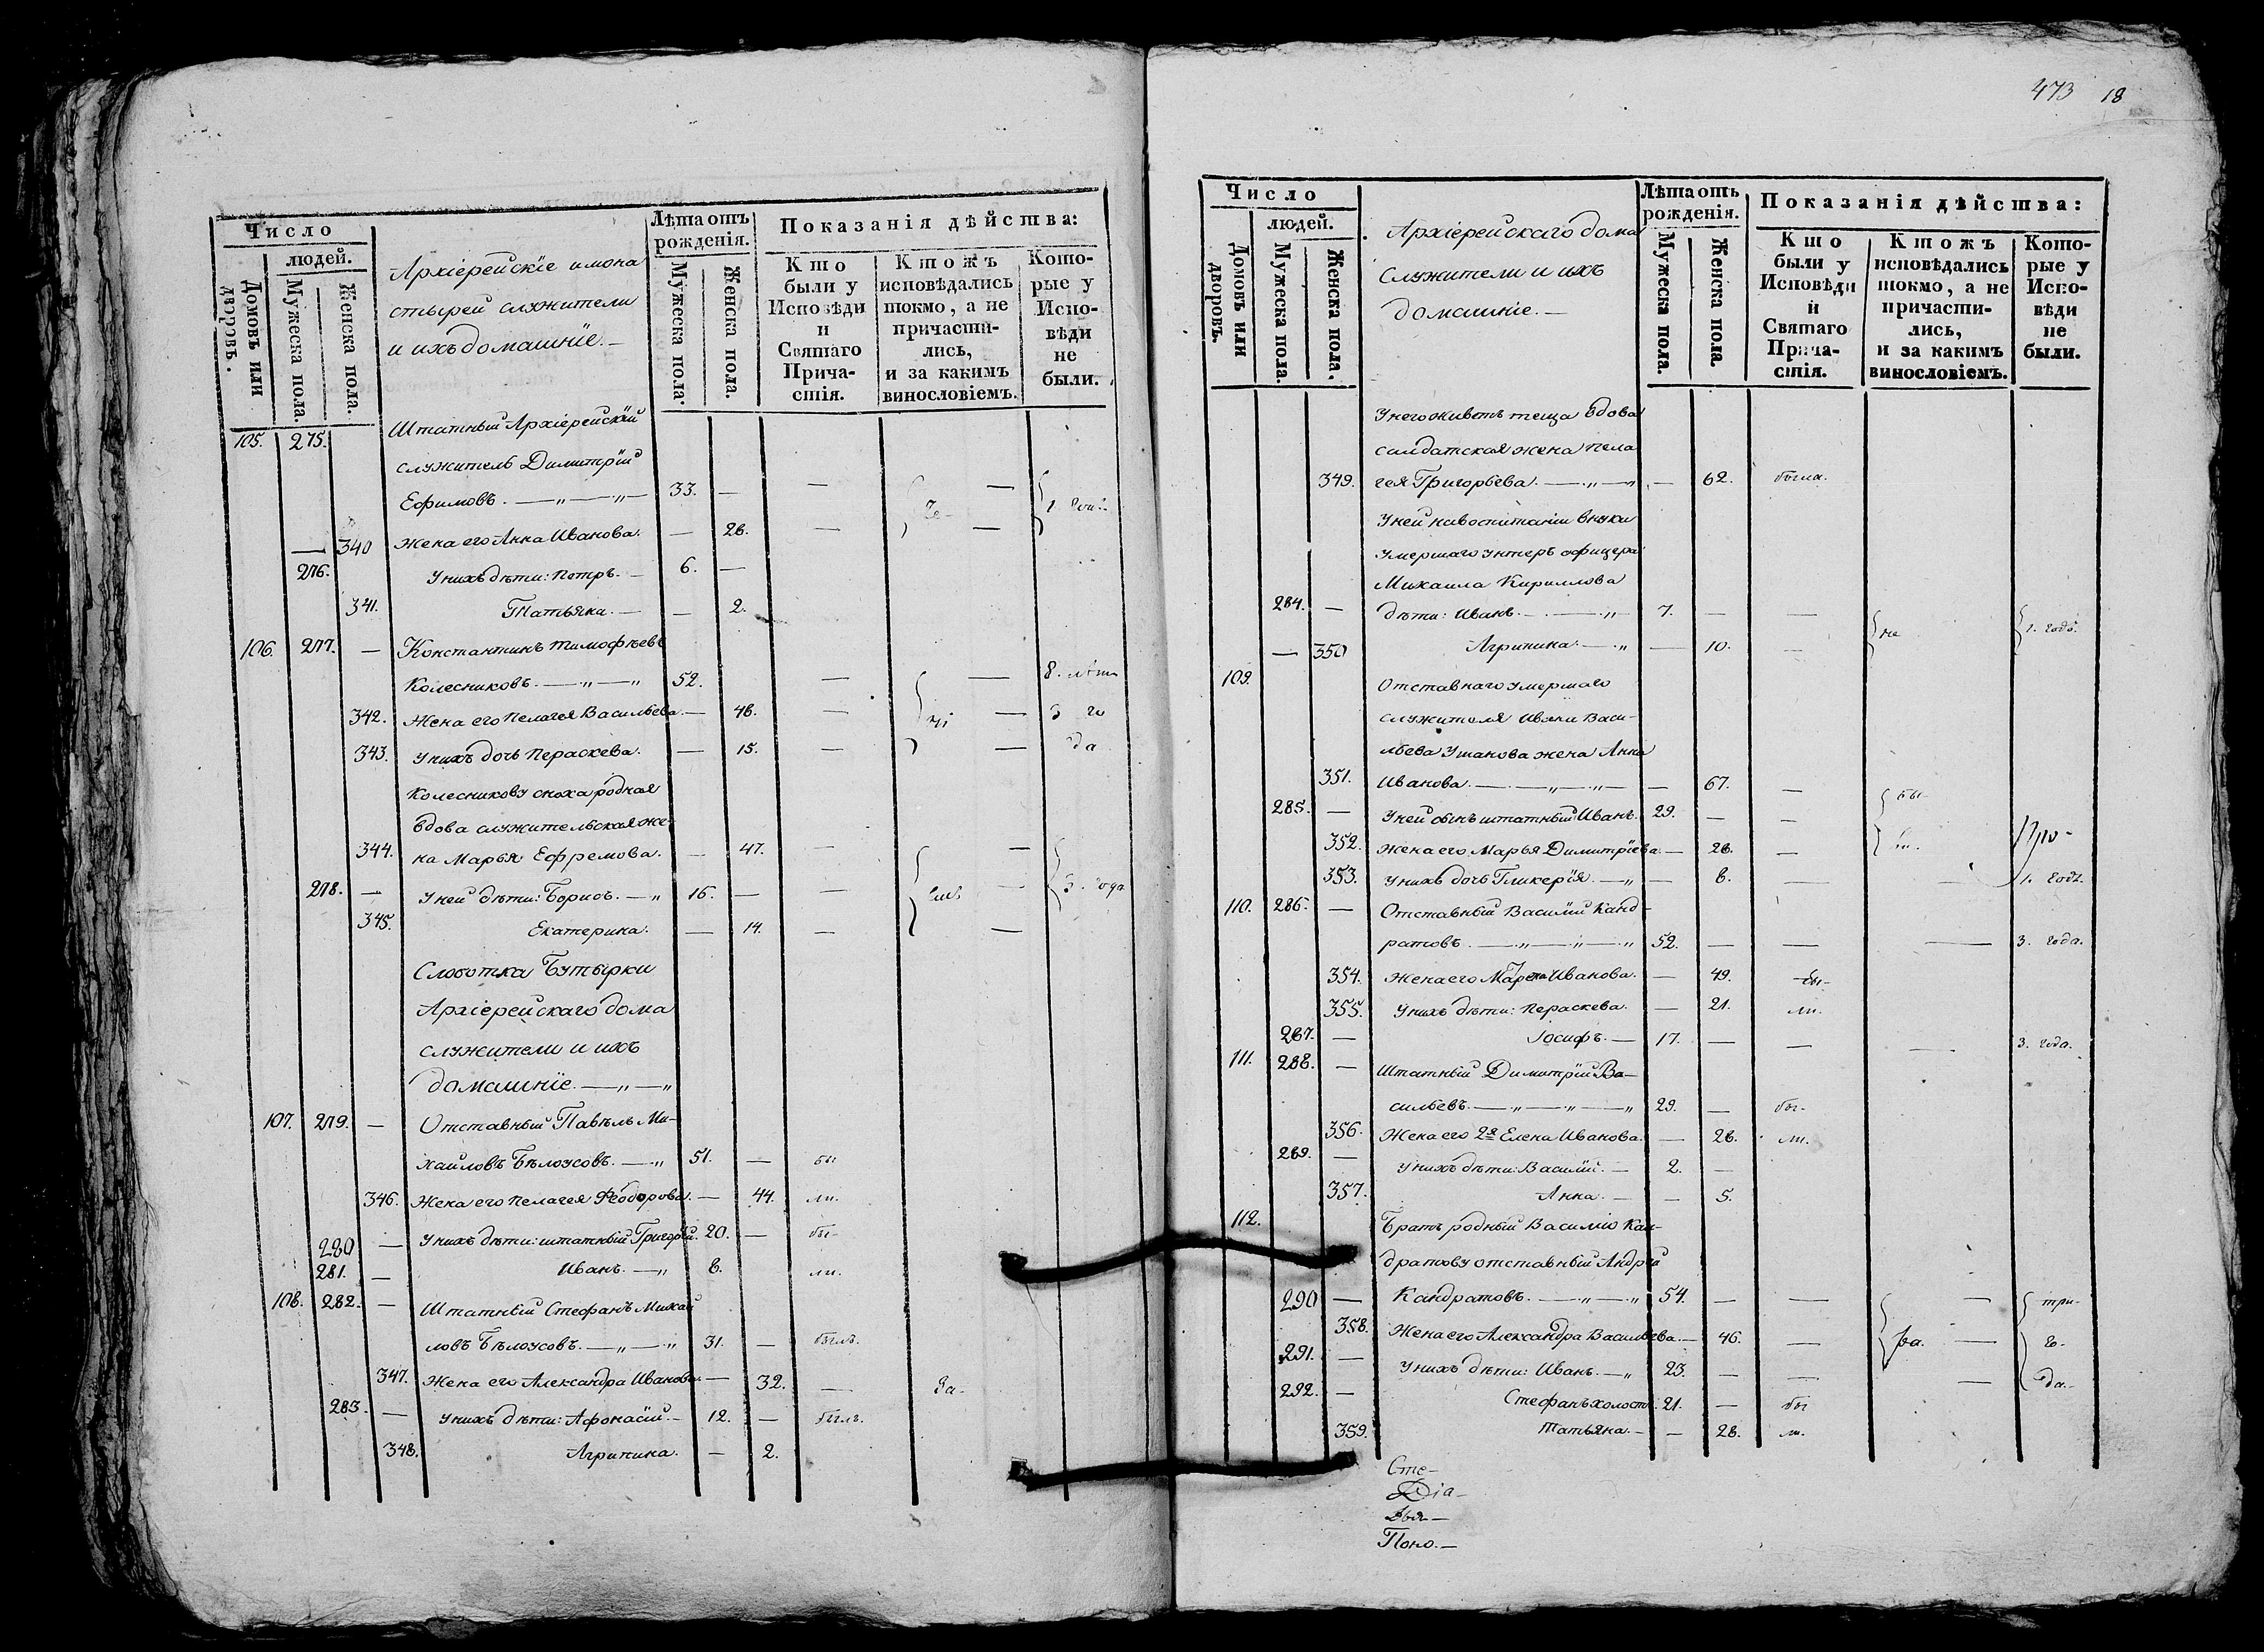 473 18
Число
людей.
Домовъ или дворовъ.
Мужеска пола.
Женска пола.
Архіерейскіе и мона
стырей служители
и ихъ домашніе. —
Лѣта отъ
рожденія.
Мужеска пола.
Женска пола.
Показанія дѣйства:
Кто
были у
Исповѣди
и
Святаго
Прича-
стія.
Ктожъ
исповѣдались
токмо, а не
причасти-
лись,
и за какимъ
винословіемъ.
Кото-
рые у
Испо-
вѣди
не
были.
105. 275. Штатный Архіерейскій
служитель Димитрій
Ефимовъ. — „ — „ — 33. — —
— 340 Жена его Анна Иванова. — 28. —
276. У нихъ дѣти: Петръ. — 6. —
341. Татьяна. — — 2.
106. 277. — Константинъ Тимофѣевъ
Колесниковъ. — „ — „ 52. — — 8. лѣтъ
342. Жена его Пелагея Васильева. — 48. — — 3 го
343. У нихъ дочь Пераскева. — 15. — — да
Колесникову сноха родная
вдова служительская же-
344. на Марья Ефремова. — 47. — —
278. — У ней дѣти: Борисъ. — „ 16. — — — 3. года
345. Екатерина. — 14. — —
Слоботка Бутырки
Архіерейскаго дома
служители и ихъ
домашніе. — „ — „
107. 279. — Отставный Павелъ Ми-
хайловъ Бѣлоусовъ. — „ 51. — бы
346. Жена его Пелагея Ѳеодорова. — 44. ли.
280 — У нихъ дѣти: штатный Григорій. 20. — бы-
281. — Иванъ. — „ 8. ли.
108. 282. — Штатный Стефанъ Михай
ловъ Бѣлоусовъ. — „ — „ 31. — былъ.
347. Жена его Александра Иванова. — 32. — За-
283. — У нихъ дѣти: Афонасій. — 12. — былъ.
348. Агрипина. — 2.
Число
людей.
Домовъ или дворовъ.
Мужеска пола.
Женска пола.
Архіерейскаго дома
служители и ихъ
домашніе. —
Лѣта отъ
рожденія.
Мужеска пола.
Женска пола.
Показанія дѣйства:
Кто
были у
Исповѣди
и
Святаго
Прича-
стія.
Ктожъ
исповѣдались
токмо, а не
причасти-
лись,
и за какимъ
винословіемъ.
Кото-
рые у
Испо-
вѣди
не
были.
У него живетъ теща вдова
салдатская жена Пела
349. гея Григорьева. — „ — „ — 62. была.
У ней на воспитаніи внуки
умершаго унтеръ офицера
Михаила Кириллова
284. — дѣти: Иванъ. — — „ 7. — —
— 350 Агрипина. — „ — 10. — не 1. годъ.
109. Отставнаго умершаго
служителя Ивана Васи-
льева Ушакова жена Анна
351. Иванова. — — „ — „ — — 67. — бы-
285. — У ней сынъ штатный Иванъ. 29. — —
352. Жена его Марья Димитріева. — 28. —
353. У нихъ дочь Гликерія. — „ — 8. — — 1. годъ.
110. 286. — Отставный Василий Канд-
ратовъ. — „ — „ — „ 52. — — — 3. года.
354. Жена его Марѳа Иванова. — 49. бы-
355. У нихъ дѣти: Пераскева. — 21. ли.
287. — Іосифъ. — 17. — — — 3. года.
111. 288. — Штатный Димитрій Ва-
сильевъ. — „ — „ — „ 29. — бы-
356. Жена его 2я Елена Иванова. — 28. ли.
289. — У нихъ дѣти: Василій. — 2. —
357. Анна. — — 5.
112. Братъ родный Василію Кан-
дратову отставный Андрей
290 — Кандратовъ. — „ — „ 54. — — — три-
358. Жена его Александра Васильева. — 46. — — го-
291. — У нихъ дѣти: Иванъ. — „ 23. — — — да. —
292. — Стефанъ холостъ. 21. — бы
359. Татьяна. — — 28. ли.
Сте-
Діа-
Поно. —